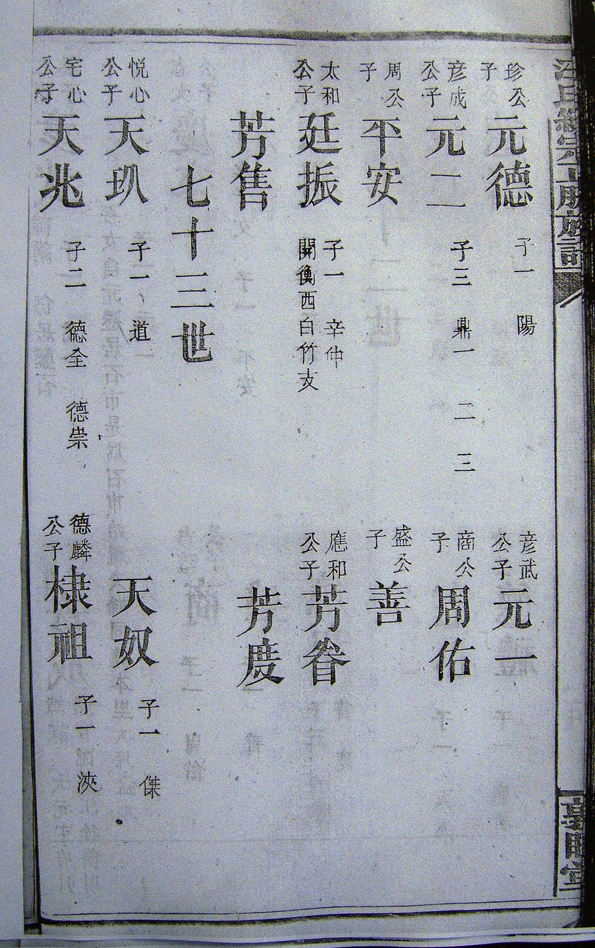 珍公子 元德 子一 陽
彥武公子 元一
彥成公子 元二 子三 鼎一 二 三
商公子 周佑
周公子 平安
盛公子 善
太和公子 廷振 子一 辛仲 開衡西白竹支
應和公子 芳眷
芳售
芳慶
七十三世
悦心公子 天玑 子一 道
天奴 子一 傑
宅心公子 天兆 子二 德全 德崇
德麟公子 棣祖 子一 浹